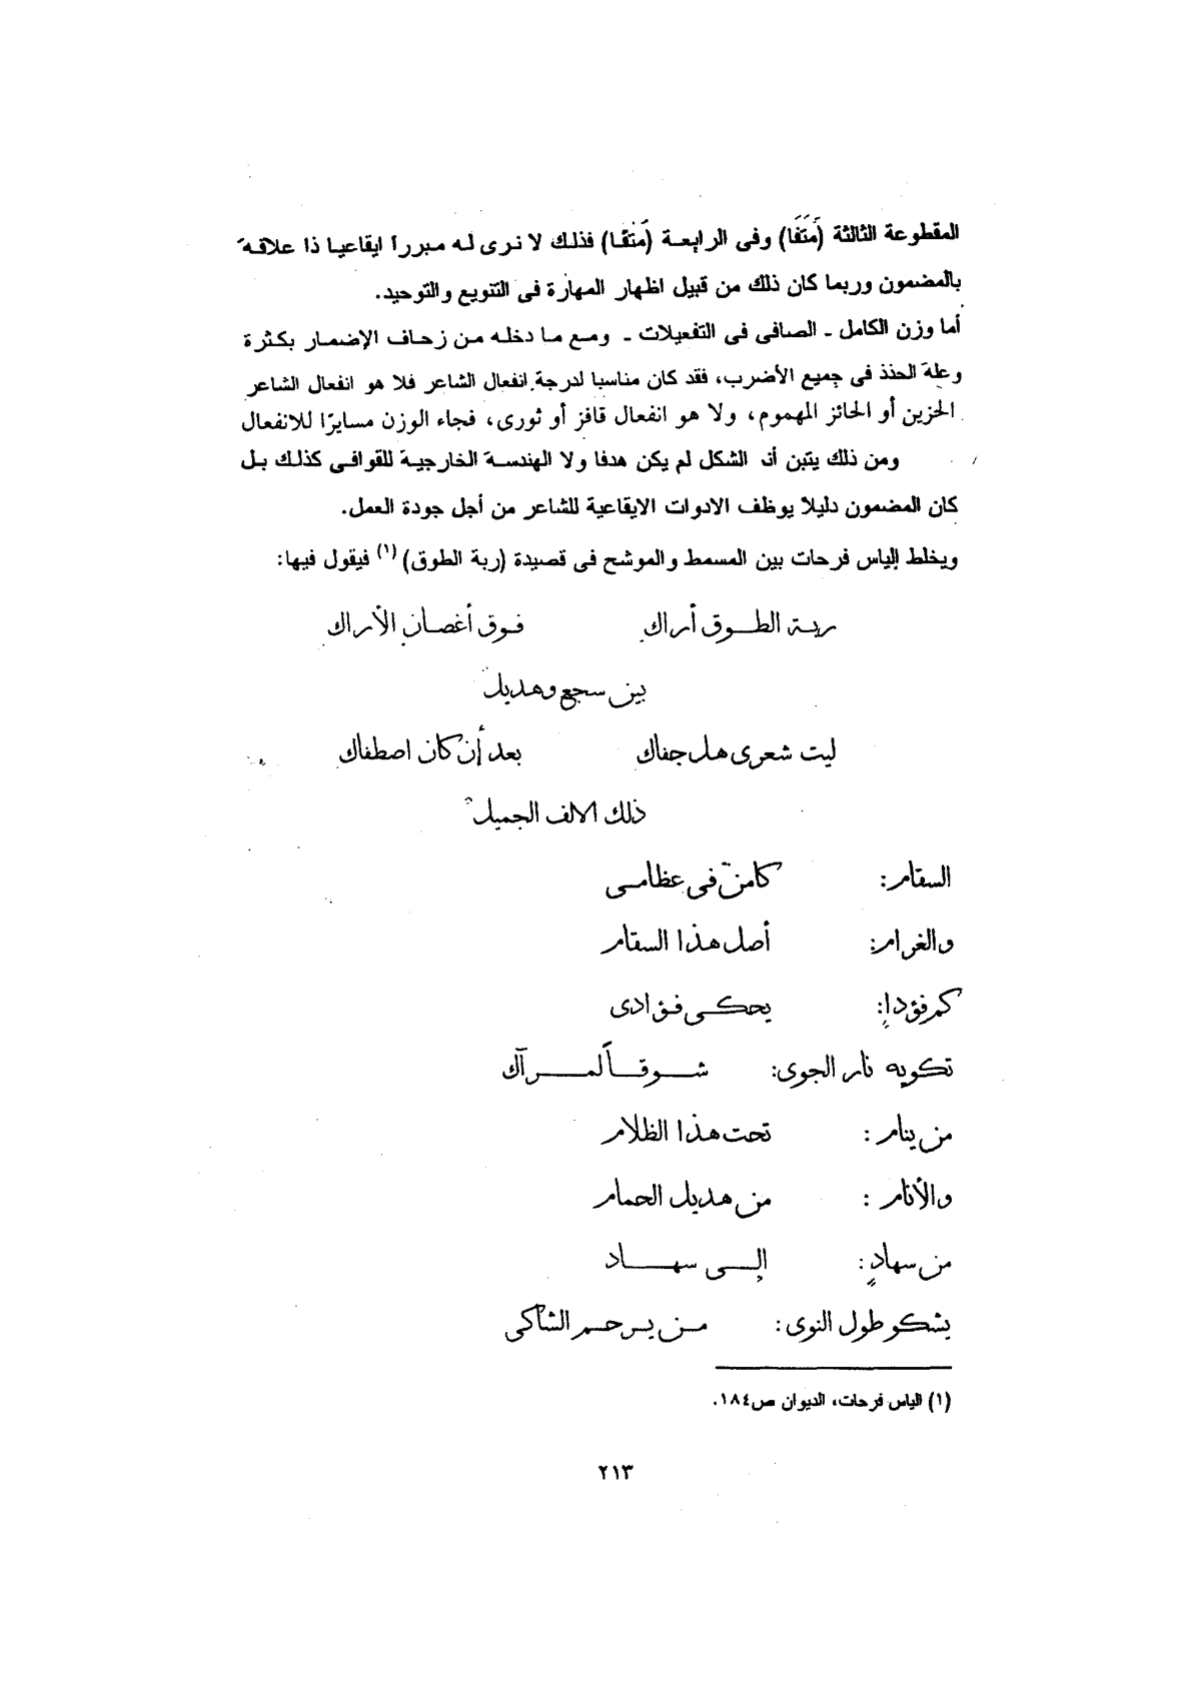 المقطوعة الثالثة (مَتَفَا) وفى الرابعة (مَتفَا) فذلك لا نرى له مبررا ايقاعيا ذا علاقة
بالمضمون وربما كان ذلك من قبيل اظهار المهارة فى التنويع والتوحيد.
أما وزن الكامل ـ الصافى فى التفعيلات ـ ومع ما دخله من زحاف الإضمار بكثرة
وعلة الحذذ فى جميع الأضرب، فقد كان مناسبا لدرجة انفعال الشاعر فلا هو انفعال الشاعر
الحزين أو الحائز المهموم، ولا هو انفعال قافز أو ثورى، فجاء الوزن مسايرًا للانفعال
ومن ذلك يتبن أن الشكل لم يكن هدفا ولا الهندسة الخارجية للقوافى كذلك بل
كان المضمون دليلا يوظف الادوات الايقاعية للشاعر من أجل جودة العمل.
ويخلط إلياس فرحات بين المسمط والموشح فى قصيدة (ربة الطوق) (١) فيقول فيها:
ربة الطوق أراك فوق أغصان الأراك
بين سجع وهديل
ليت شعرى هل جفاك بعد أن كان اصطفاك
ذلك الالف الجميل
السقام: كامن فى عظامى
والغرام: أصل هذا السقام
كم فؤدإ: يحكى فؤادى
تكويه نار الجوى: شوقاً لمرآك
من ينام : تحت هذا الظلام
والأنام : من هديل الحمام
من سهادٍ : إلى سهاد
يشكو طول النوى: من يرحم الشاكى
(١) الياس فرحات، الديوان ص١٨٤.
٢١٣